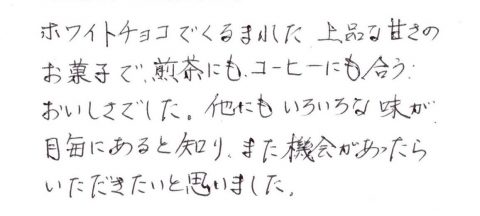 ホワイトチョコでくるまれた 上品な甘さの
お菓子で、煎茶にも、コーヒーにも、合う
おいしさでした。他にもいろいろな味が
月毎にあると知り、また機会があったら
いただきたいと思いました。